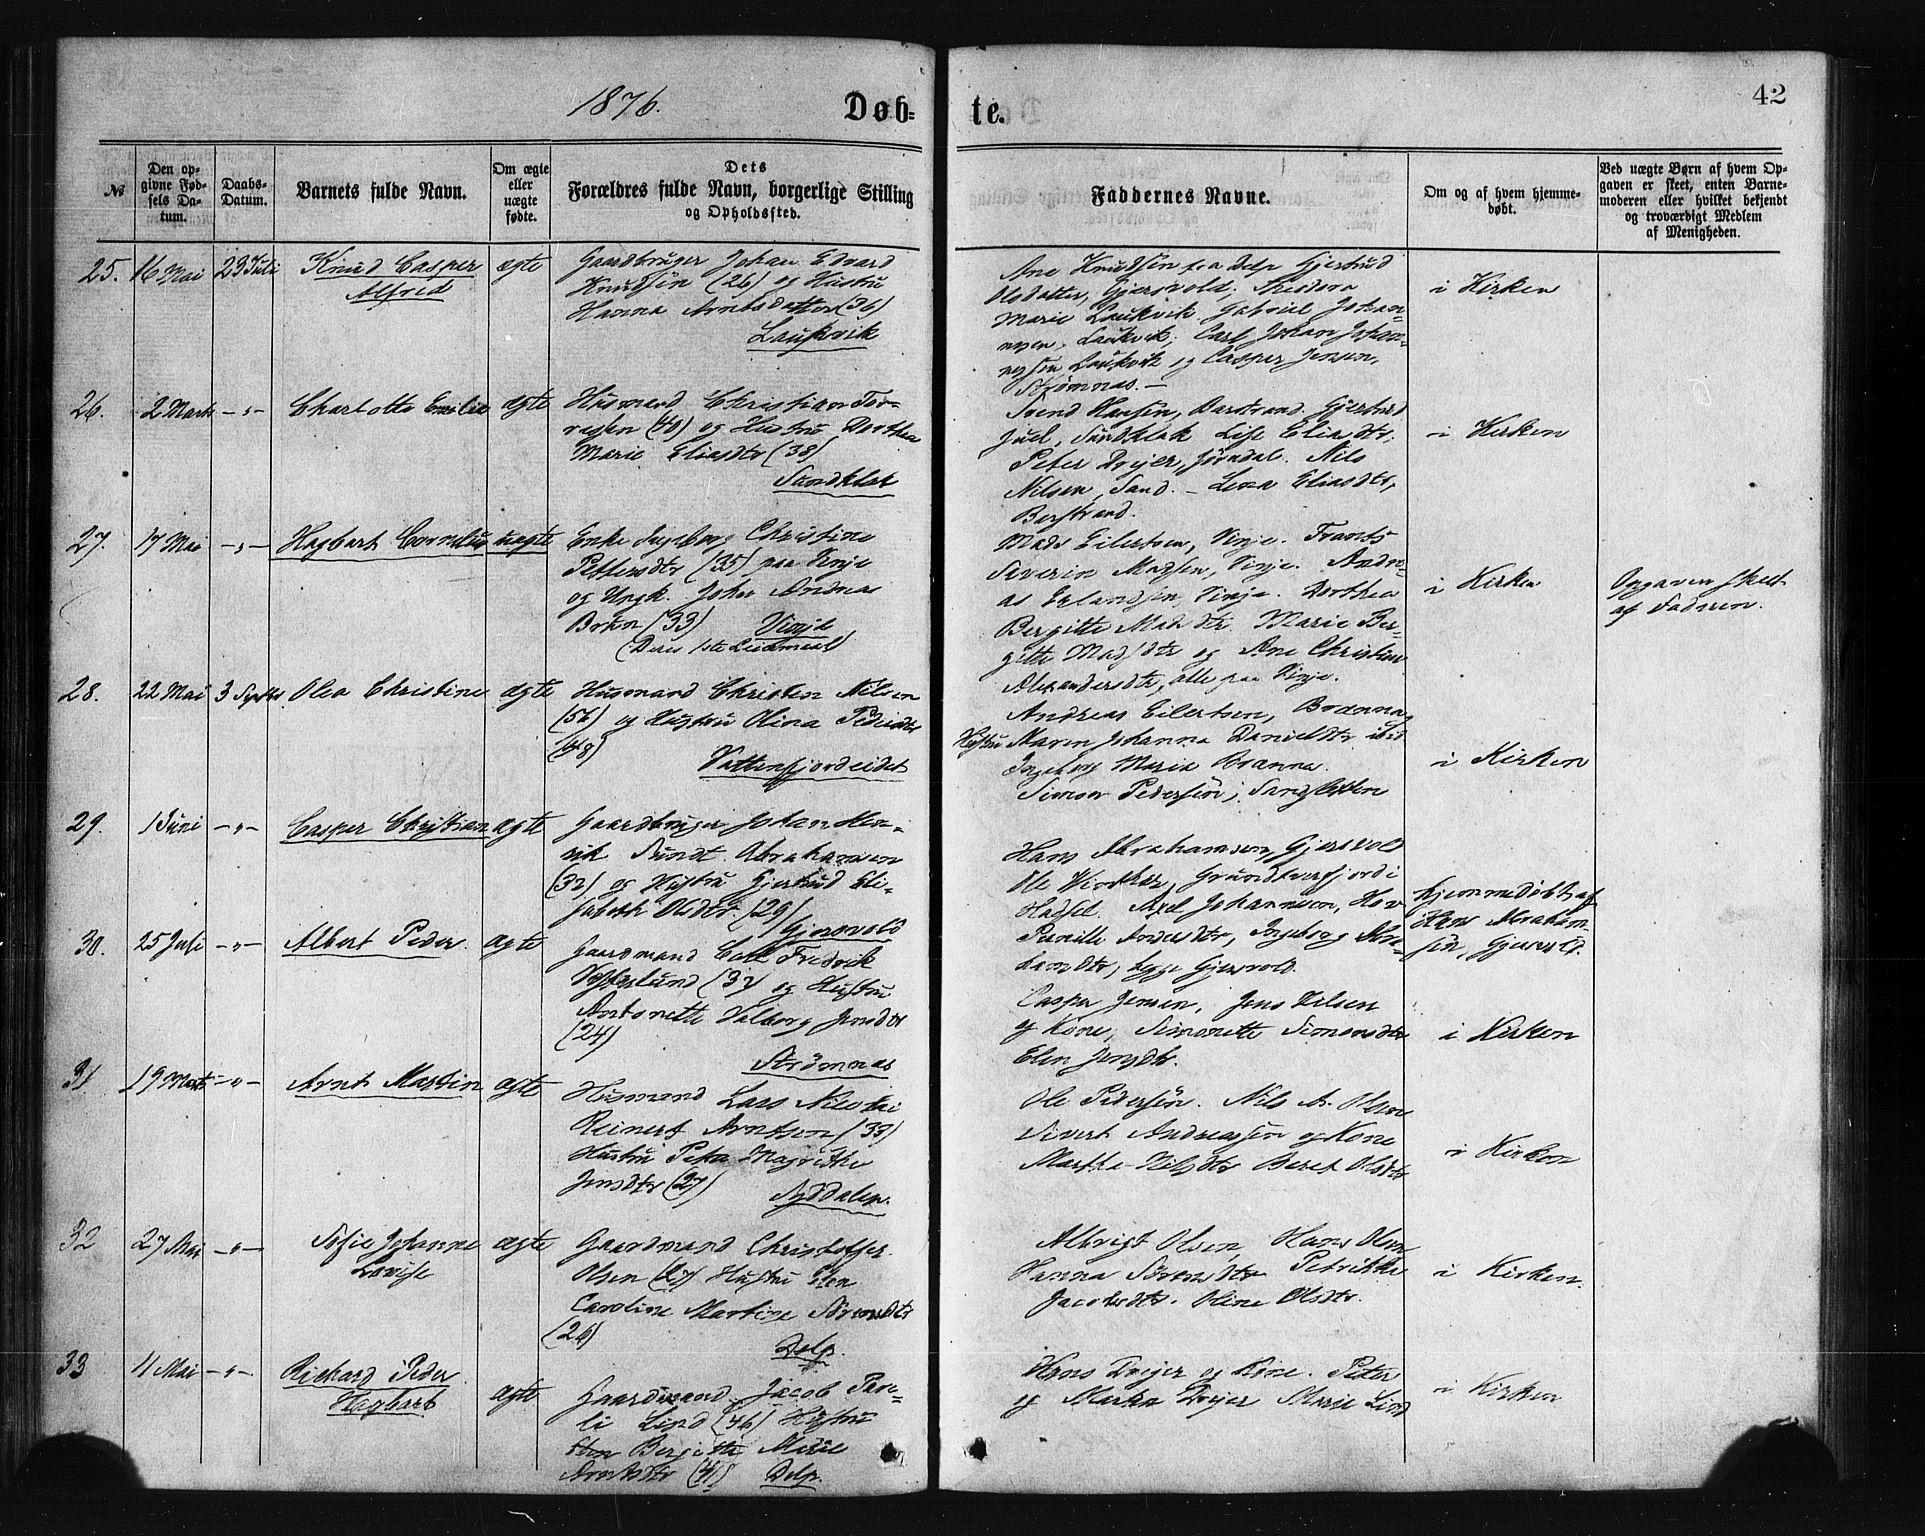 1876.
Døb-
te.
42
№
Den opgivne Fødsels Datum.
Daabs-Datum.
Barnets fulde Navn.
Om ægte eller uægte fødte.
Dets Forældres fulde Navn, borgerlige Stilling og Opholdssted.
Faddernes Navne.
Om og af hvem hjemmedøbt.
Ved uægte Børn af hvem Opgaven er skeet, enten Barnemoderen eller hvilket bekjendt og troværdigt Medlem af Menigheden.
25. 16 Mai 23 Juli Knud Casper ægte
Alfred
Gaardbruger Johan Edvard
Knudsen (26) og Hustru
Hanna Arntsdatter (36)
Laukvik
Ane Knudsen fra Delp Gjertrud
Olsdatter, Gjersvold, Theodora
Marie Laukvik Gabriel Johan-
nesen, Laukvik, Carl Johan Johan-
nessen Laukvik og Casper Jensen,
Strømnas. —
i Kirken
26. 2 Marts -"- Charlotte Emilie ægte
Husmand Christian Tor-
resen (40) og Hustru Dorthea
Marie Eliasdtr (38)
Sandklek
Svend Hansen, Barstrand Gjertrud
Juel, Sandklek Lise Eliasdtr,
Peter Dreyer, Jørndal. Nils
Nilsen, Sand. — Lena Eliasdtr,
Berstrand.
i Kirken
27. 17 Mai -"- Hagbart Cornelius uægte
Enke Ingeborg Christine
Pettersdtr (35) paa Vinje
og Ungk. Johan Andreas
Bruun (33) Vinje
(Deres 1ste Leiermaal)
Mads Eilertsen, Vinje. Frants
Severin Madsen, Vinje. Andre-
as Erlandsen, Vinje. Dorthea
Bergitte Madsdtr. Marie Ber-
gitte Madsdtr og Ane Christine
Alexandersdtr, alle paa Vinje.
i Kirken
Opgaven skeet
af Faderen.
28. 22 Mai 3 Septbr Olea Christine ægte
Husmand Christen Nilsen
(56) og Hustru Olina Pedersdtr
(48)
Vattenfjordeidet
Andreas Eilertsen, Brænna,
Hustru Maren Johanna Danielsdtr ibid
Ingeborg Maria Brænna.
Simon Pedersen,
i Kirken
29. 1 Juni -"- Casper Christian ægte
Gaardbruger Johan Hen-
rik Sundt Abrahamsen
(32) og Hustru Gjertrud Eli-
sabeth Olsdtr. (29)
Gjersvold
Hans Abrahamsen, Gjersvold
Ole Grundtværfjord i
Hadsel. Axel Johannesen, Hov
Pernille Andersdtr, Ingeborg
begge Gjersvold.
hjemmedøbt af
Hans Abraham-
sen, Gjersvold.
30. 25 Juli -"- Albert Peder ægte
Gaardmand Carl Fredrik
Vesterlund (32) og Hustru
Antonette Valborg Jensdtr
(24)
Strømnas
Casper Jensen, Jens Nilsen
og Kone, Simonette Simonsdtr
Elen Jensdtr.
i Kirken
31 19 Marts -"- Arnt Martin ægte
Husmand Lars Nicolai
Reinert Arntsen (33)
Hustru Petra Magrethe
Jensdtr (27) Syddalen.
Ole Pedersen. Nils A. Olsen
Sivert Andreassen og Kone
Martha Nilsdtr Beret Olsdtr
i Kirken
32 27 Mai -"- Sofie Johanne ægte
Lovise
Gaardmand Christoffer
Olsen (27) Hustru Elen
Caroline Martine Sørensdtr
(26)
Delp.
Albrigt Olsen, Hans Olsen
Hanna Sørensdtr Petrikke
Jacobsdtr. Oline Olsdtr.
i Kirken.
33 11 Mai -"- Rickard Peder
Hagbart ægte
Gaardmand Jacob Pave-
li Lind (46) Hustru
Elen Bergitte Marie
Arntsdtr (41) Delp.
Hans Dreyer og Kone. Peter
og Marka Dreyer Marie Lind
i Kirken